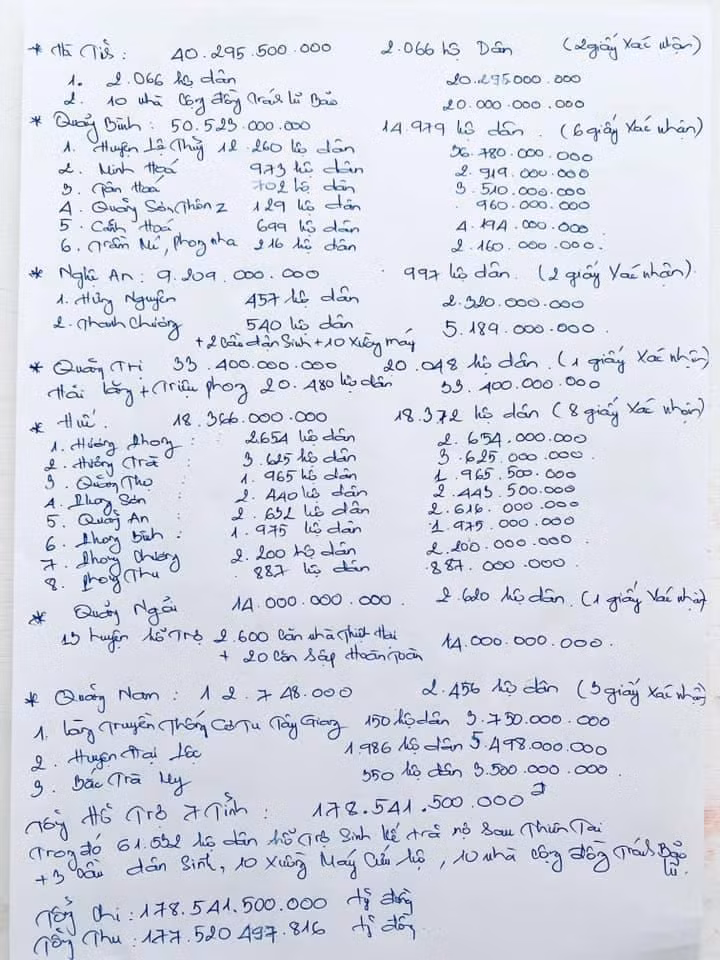 * Hà Tĩnh: 40.295.500.000 2.066 hộ Dân (2 giấy Xác nhận)
1. 2.066 hộ dân 20.295.000.000
2. 10 nhà Cộng đồng Tránh lũ Bão 20.000.000.000
* Quảng Bình: 50.523.000.000 14.979 hộ dân. (6 giấy Xác nhận)
1. Huyện Lệ Thủy 12.260 hộ dân 36.780.000.000
2. Minh Hoá 973 hộ dân 2.919.000.000
3. Tân Hoá 702 hộ dân 3.510.000.000
4. Quảng Sơn, Thôn 2 129 hộ dân 960.000.000
5. Cảnh Hoá 699 hộ dân 4.194.000.000
6. Trầm Mé, Phong nha 216 hộ dân 2.160.000.000.
* Nghệ An: 9.209.000.000 997 hộ dân. (2 giấy Xác nhận).
1. Hưng Nguyên 457 hộ dân 2.320.000.000
2. Thanh Chương 540 hộ dân 5.189.000.000.
+ 2 Cầu dân Sinh + 10 Xuồng máy
* Quảng Trị 33.400.000.000 20.048 hộ dân. (1 giấy Xác nhận)
Hải lăng + Triệu phong 20.480 hộ dân 33.400.000.000
* Huế. 18.366.000.000 18.372 hộ dân (8 giấy Xác nhận)
1. Hương Phong: 2654 hộ dân 2.654.000.000
2. Hương Trà: 3.625 hộ dân 3.625.000.000.
3. Quảng Thọ: 1.965 hộ dân 1.965.500.000
4. Phong Sơn: 2.440 hộ dân 2.443.500.000
5. Quảng An: 2.632 hộ dân 2.616.000.000
6. Phong Bình: 1.975 hộ dân 1.975.000.000
7. Phong Chương 2.200 hộ dân 2.200.000.000.
8. Phong Thu 887 hộ dân 887.000.000.
* Quảng Ngãi 14.000.000.000. 2.620 hộ dân. (1 giấy Xác nhận)
13 huyện hỗ Trợ 2.600 Căn nhà Thiệt Hại 14.000.000.000.
+ 20 Căn Sập Hoàn Toàn
* Quảng Nam: 12.748.000 2.456 hộ dân (3 giấy Xác nhận)
1. làng Truyền Thống Cơ Tu Tây Giang 150 hộ dân 3.750.000.000
2. Huyện Đại Lộc 1.986 hộ dân 5.498.000.000
3. Bắc Trà My 350 hộ dân 3.500.000.000.
Tổng Hỗ Trợ 7 Tỉnh: 178.541.500.000 đ
Trong đó 61.532 hộ dân hỗ Trợ Sinh kế trả nợ Sau Thiên Tai
+ 3 Cầu dân Sinh, 10 Xuồng Máy Cứu hộ, 10 nhà Cộng đồng Tránh Bão lũ.
Tổng Chi: 178.541.500.000 tỷ đồng
Tổng Thu: 177.520.497.816 tỷ đồng